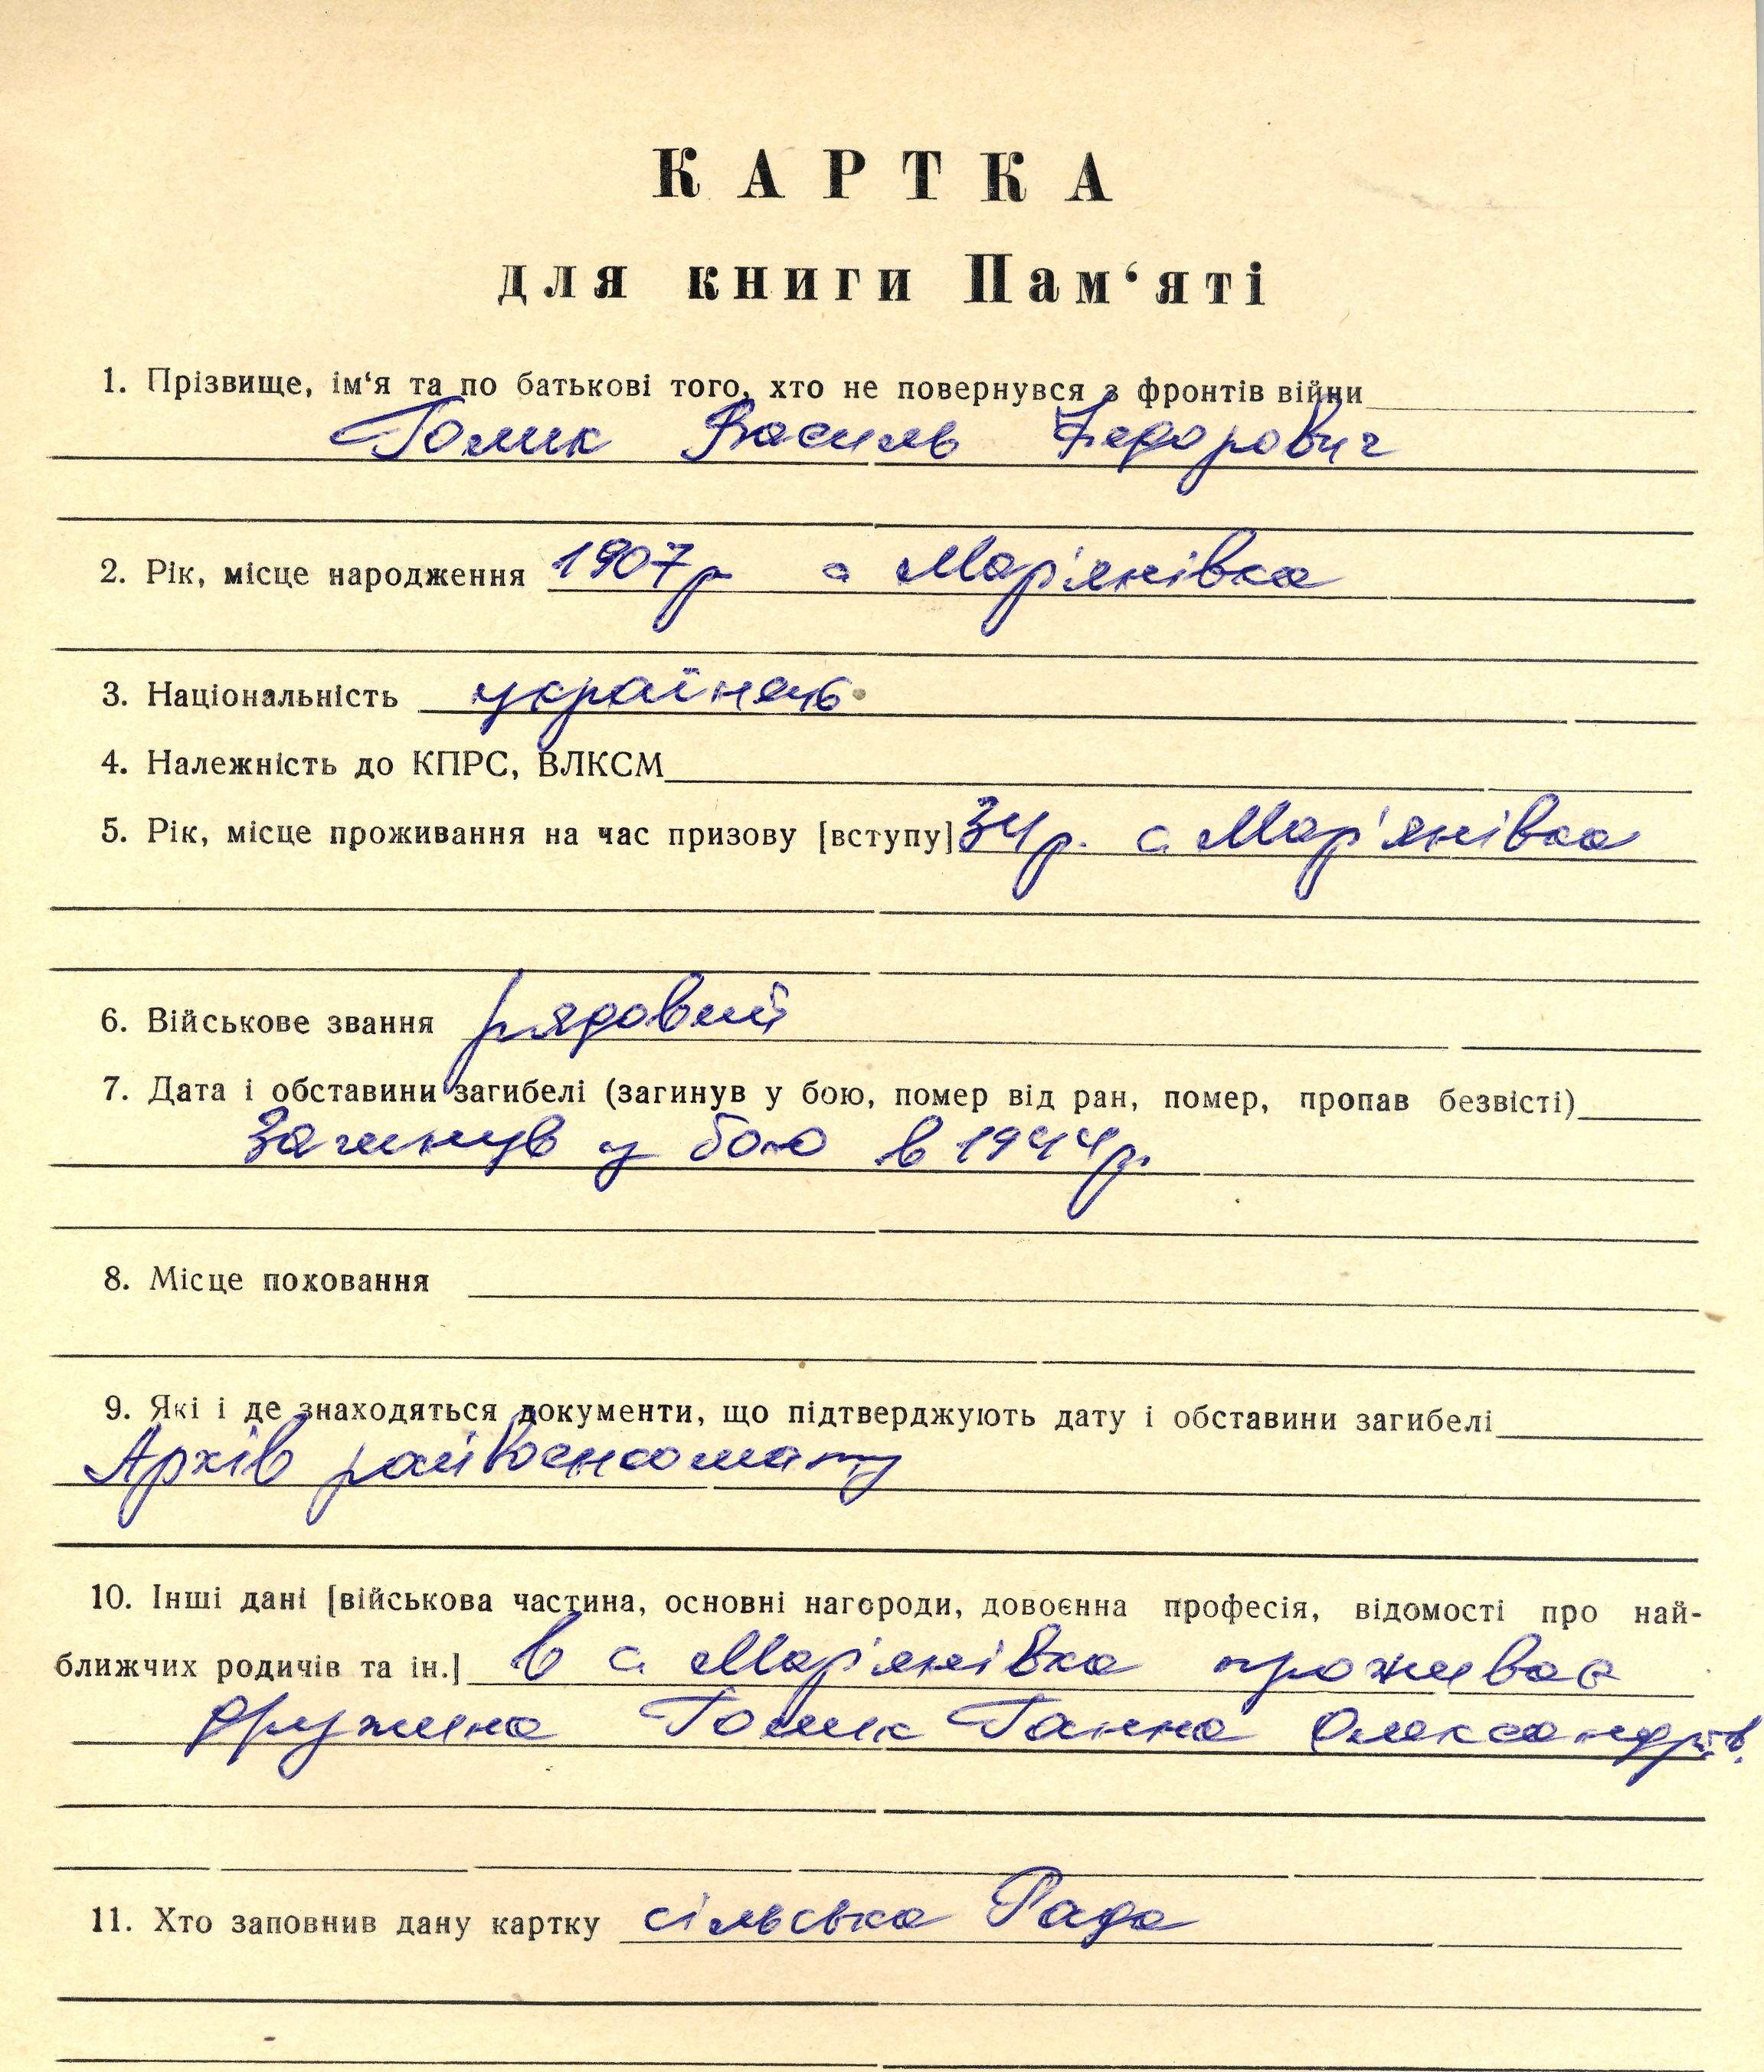 КАРТКА
для книги Пам‘яті
1. Прізвище, ім‘я та по батькові того, хто не повернувся з фронтів війни
Голик Василь Федорович
2. Рік, місце народження 1907р с Мар'янівка
3. Національність українець
4. Належність до КПРС, ВЛКСМ
5. Рік, місце проживання на час призову [вступу] 34р. с. Мар'янівка
6. Військове звання рядовий
7. Дата і обставини загибелі (загинув у бою, помер від ран, помер, пропав безвісті)
Загинув у бою в 1944р.
8. Місце поховання
9. Які і де знаходяться документи, що підтверджують дату і обставини загибелі
Архів райвоєнкомату
10. Інші дані [військова частина, основні нагороди, довоєнна професія, відомості про най-
ближчих родичів та ін.] в с. Мар'янівка проживає
дружина Голик Ганна Олександрів.
11. Хто заповнив дану картку сільська Рада